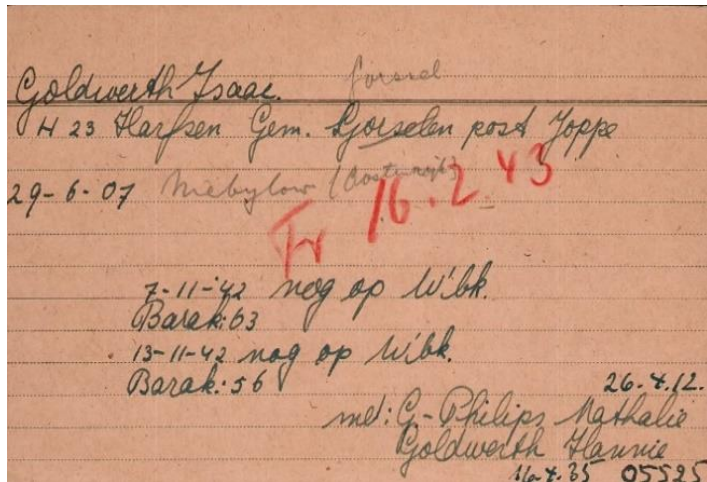 Goldwerth Isaac.
H 23 Harfsen Gem. Gorselen post Joppe
29-6-07 Niebylow (Oostenrijk)
Tr 16.2 43
7-11-42 nog op W'bk.
Barak: 63
13-11-42 nog op W'bk.
Barak: 56
26.4.12.
met: G.-Philips Nathalie
Goldwerth Hannie
16.4.35 05525